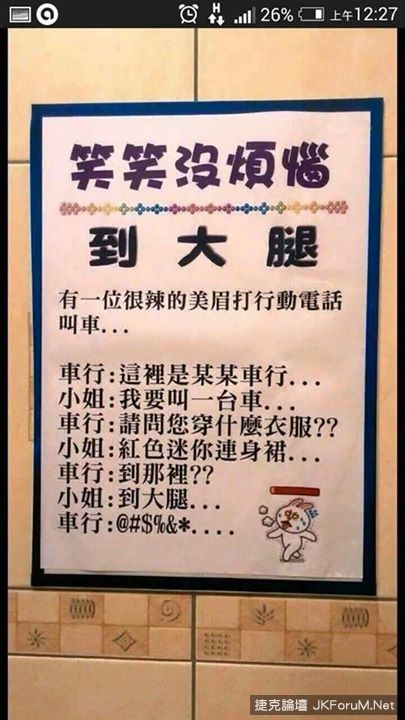 H
26%
上午12:27
笑笑沒煩惱
到大腿
有一位很辣的美眉打行動電話
叫車...
車行:這裡是某某車行...
小姐:我要叫一台車...
車行:請問您穿什麼衣服??
小姐:紅色迷你連身裙...
車行:到那裡??
小姐:到大腿...
車行:@#$%&*....
捷克論壇 JKForuM.Net